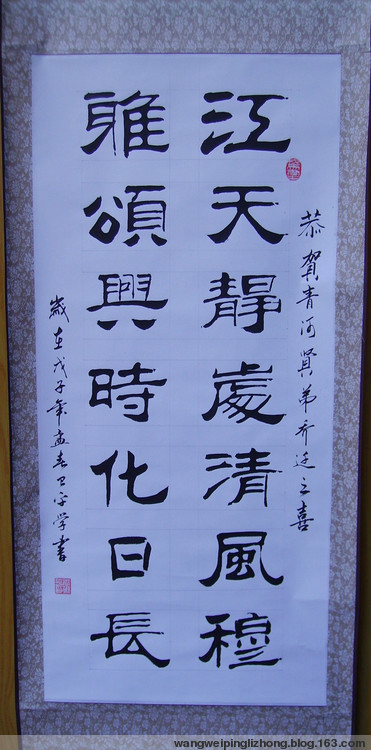 恭賀青河賢弟乔迁之喜
江天靜處清風穆
雅頌興時化日長
歲在戊子年孟春学書
wangweipinglizhong.blog.163.com